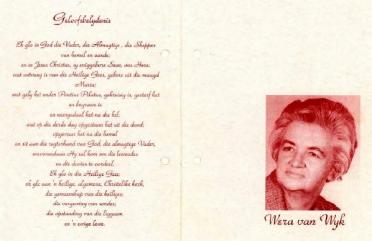 Geloofsbelydenis
Ek glo in God die Vader, die Almagtige, die Skepper
van hemel en aarde;
en in Jesus Christus, sy eniggebore Seun, ons Here;
wat ontvang is van die Heilige Gees, gebore uit die maagd
Maria;
wat gely het onder Pontius Pilatus, gekruisig is, gesterf het
en begrawe is
en neergedaal het na die hel;
wat op die derde dag opgestaan het uit die dood;
opgevaar het na die hemel
en sit aan die regterhand van God, die almagtige Vader,
vanwaar Hy sal kom om die lewendes
en die dooies te oordeel.
Ek glo in die Heilige Gees;
ek glo aan 'n heilige, algemene, Christelike kerk,
die gemeenskap van die heiliges;
die vergewing van sondes;
die opstanding van die liggaam
en 'n ewige lewe.
Wera van Wyk